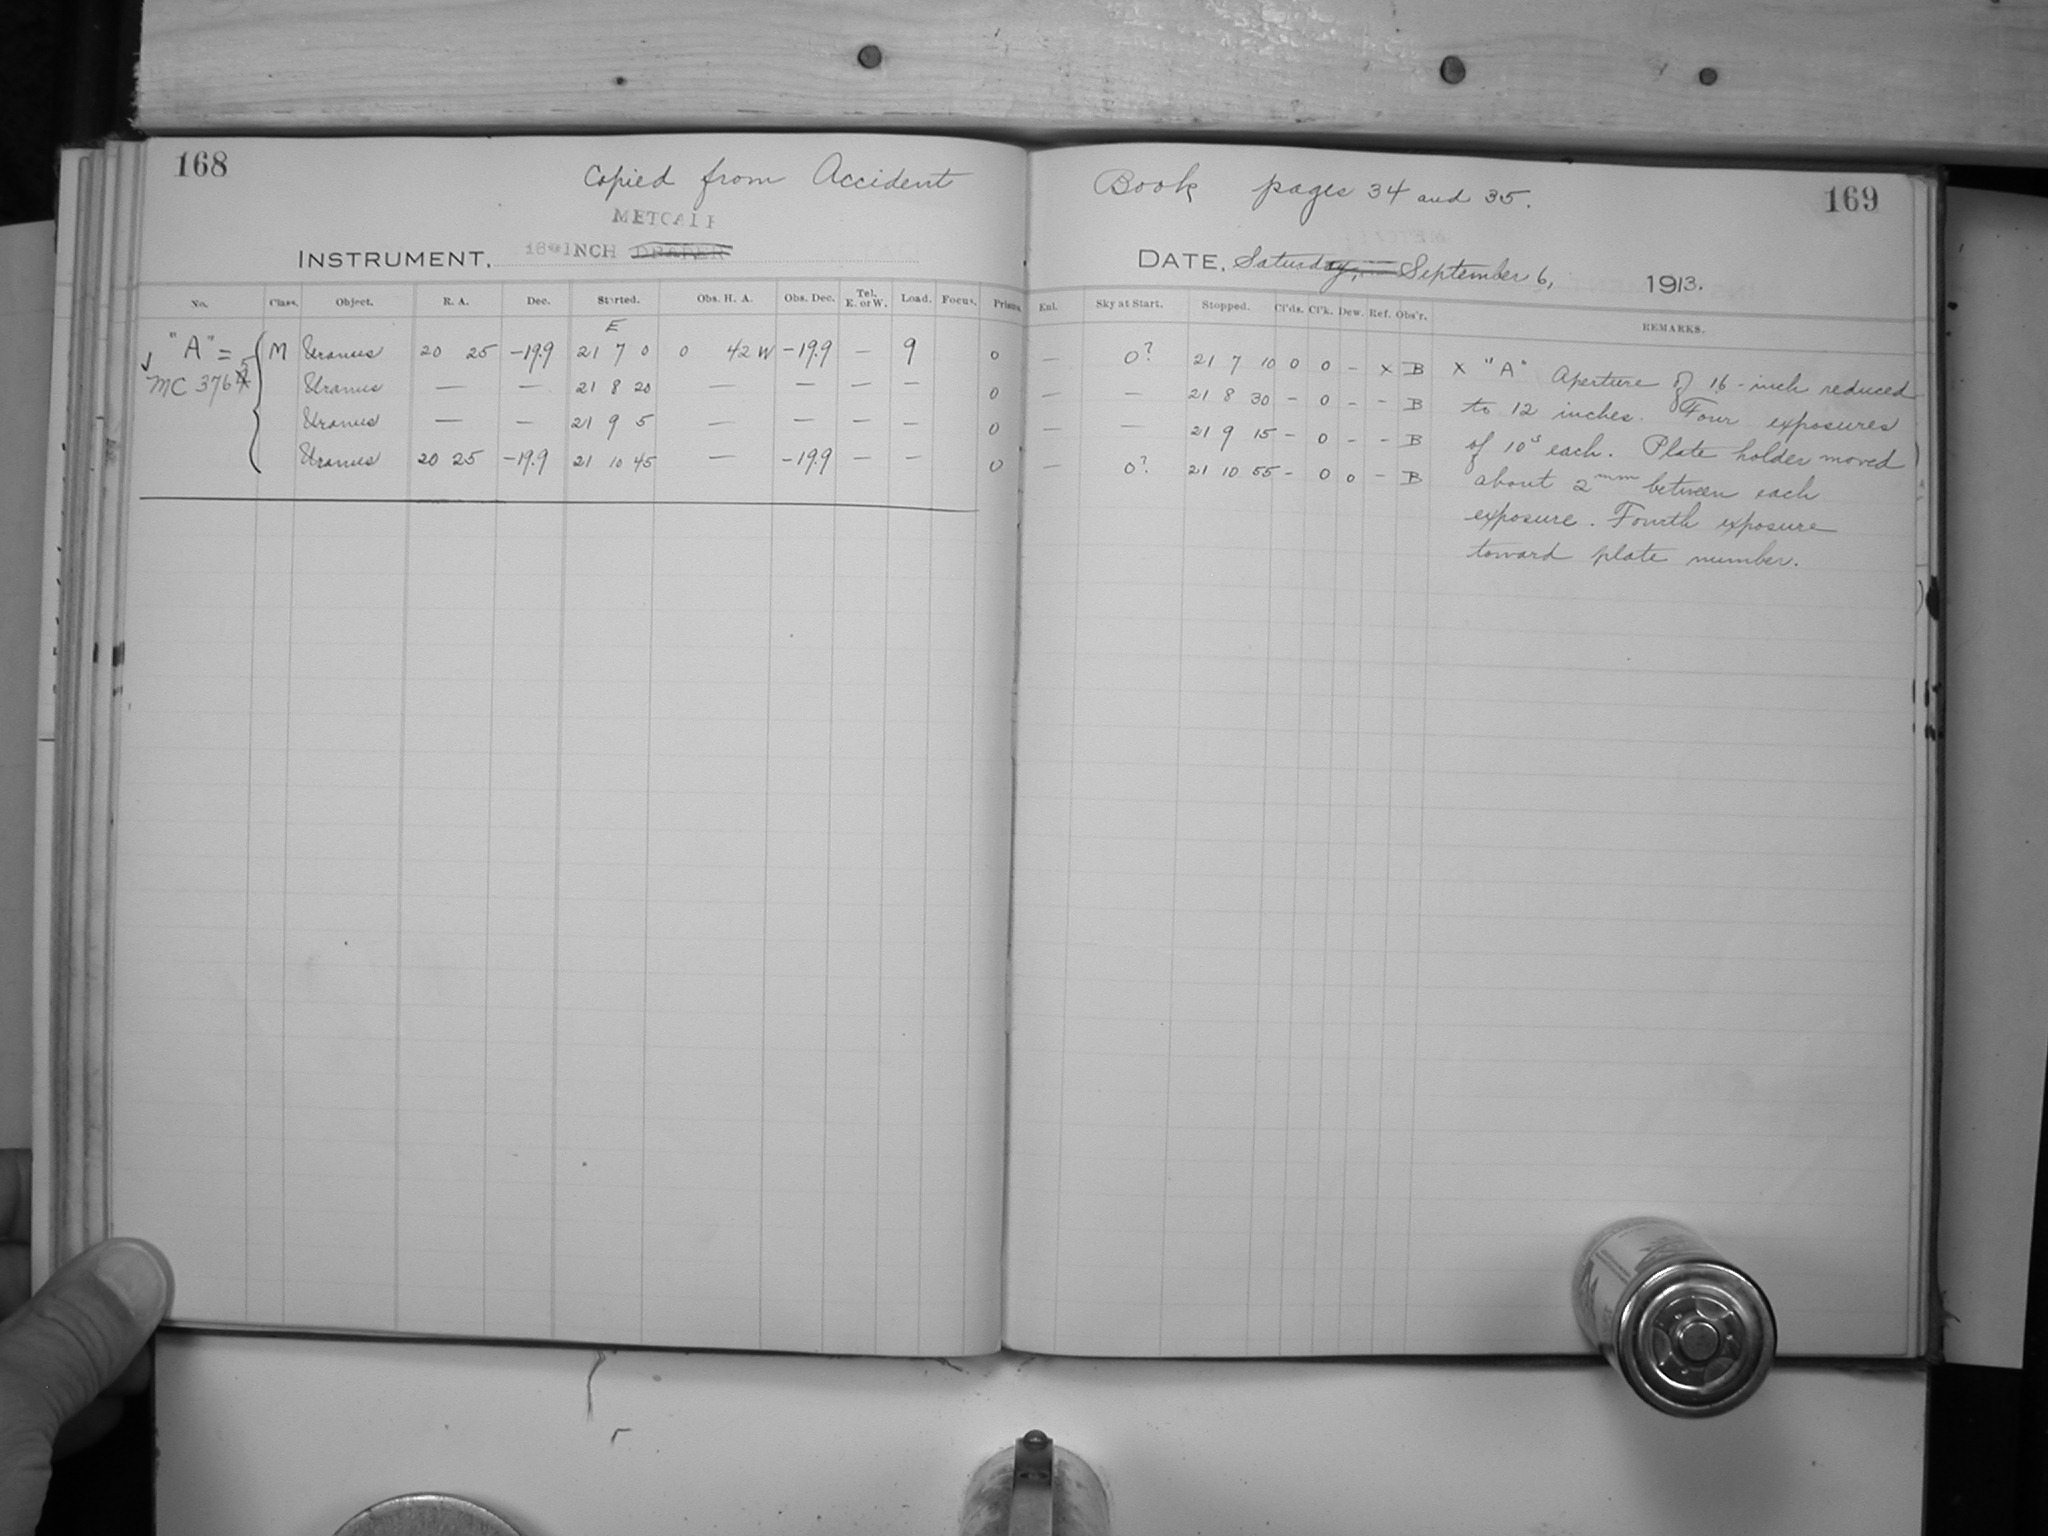 168
Copied from Accident Book pages 34 and 35.
169
METCALF
INSTRUMENT, 16-INCH DRAPER
DATE, Saturday, September 6, 1913.
No. Class. Object. R. A. Dec. Started. Obs. H. A. Obs. Dec. Tel. E. or W. Load. Focus. Prisms. Enl. Sky at Start. Stopped. Cl'ds. Cl'k. Dew. Ref. Obs'r. REMARKS.
E
"A" = M Uranus 20 25 -19.9 21 7 0 0 42 W -19.9 — 9 0 — 0? 21 7 10 0 0 - x B x "A" Aperture of 16-inch reduced
MC 3765 Uranus — — 21 8 20 — — — — 0 — — 21 8 30 - 0 - - B to 12 inches. Four exposures
Uranus — — 21 9 5 — — — — 0 — — 21 9 15 - 0 - - B of 10s each. Plate holder moved
Uranus 20 25 -19.9 21 10 45 — -19.9 — — 0 — 0? 21 10 55 - 0 0 - B about 2mm between each
exposure. Fourth exposure
toward plate number.